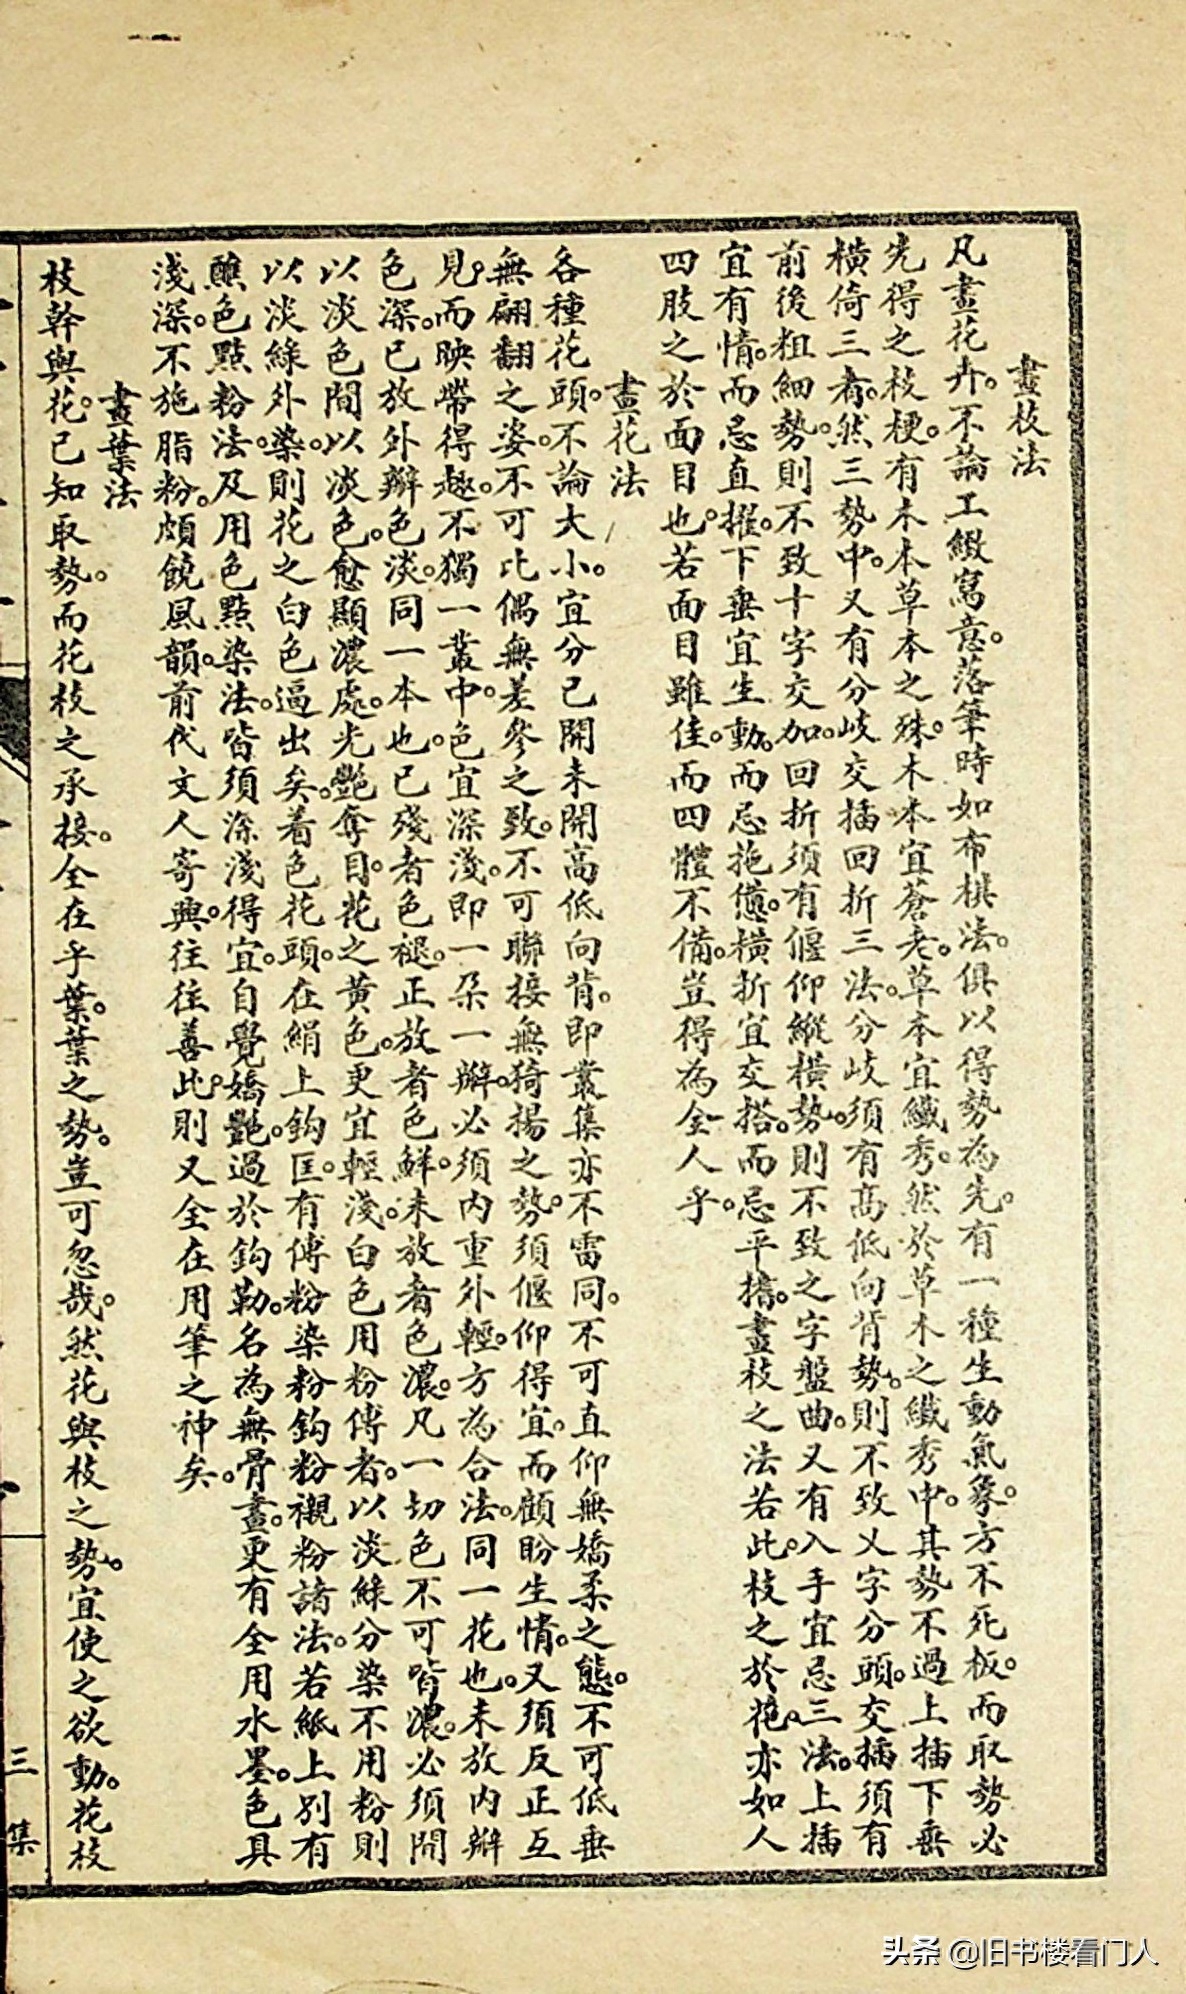 畫枝法
凡畫花卉。不論工緻寫意。落筆時如布棋法。俱以得勢為先。有一種生動氣象。方不死板。而取勢必
先得之枝梗。有木本草本之殊。木本宜蒼老。草本宜纖秀。然於草木之纖秀中。其勢不過上插下垂
橫倚三者。然三勢中。又有分岐交插回折三法。分岐須有高低向背勢。則不致乂字分頭。交插須有
前後粗細勢。則不致十字交加。回折須有偃仰縱橫勢。則不致之字盤曲。又有入手宜忌三法。上插
宜有情。而忌直擢。下垂宜生動。而忌拖憊。橫折宜交搭。而忌平攜。畫枝之法若此。枝之於花。亦如人
四肢之於面目也。若面目雖佳。而四體不備。豈得為全人乎。
畫花法
各種花頭。不論大小。宜分已開未開高低向背。即叢集亦不雷同。不可直仰無嬌柔之態。不可低垂
無翩翻之姿。不可比偶無差參之致。不可聯接無猗揚之勢。須偃仰得宜。而顧盼生情。又須反正互
見。而映帶得趣。不獨一叢中。色宜深淺。即一朵一瓣。必須內重外輕。方為合法。同一花也。未放內瓣
色深。已放外瓣色淡。同一本也。已殘者色褪。正放者色鮮。未放者色濃。凡一切色不可皆濃。必須間
以淡色間以淡色。愈顯濃處。光艷奪目。花之黃色。更宜輕淺。白色用粉傅者。以淡綠分染不用粉則
以淡綠外染。則花之白色逼出矣。着色花頭。在絹上鈎匡。有傅粉染粉鈎粉襯粉諸法。若紙上別有
醮色點粉法及用色點染法。皆須深淺得宜。自覺嬌艷。過於鈎勒。名為無骨畫。更有全用水墨。色具
淺深。不施脂粉。頗饒風韻。前代文人寄興。往往善此。則又全在用筆之神矣。
畫葉法
枝幹與花。已知取勢。而花枝之承接。全在乎葉。葉之勢。豈可忽哉。然花與枝之勢。宜使之欲動。花枝
三集
头条 @旧书楼看门人